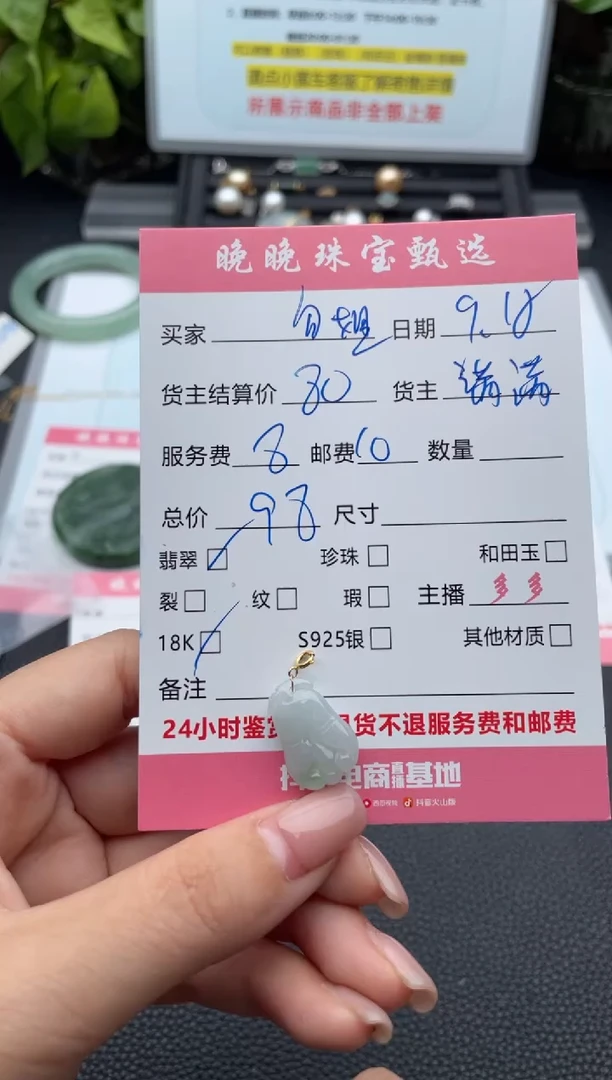 所展示商品非全部上架
晚晚珠宝甄选
买家 白姐 日期 9.18
货主结算价 80 货主 满满
服务费 8 邮费 10 数量
总价 98 尺寸
翡翠 珍珠 和田玉
裂 纹 瑕 主播 多多
18K S925银 其他材质
备注
24小时鉴赏 货不退服务费和邮费
抖 电商直播基地
抖音火山版